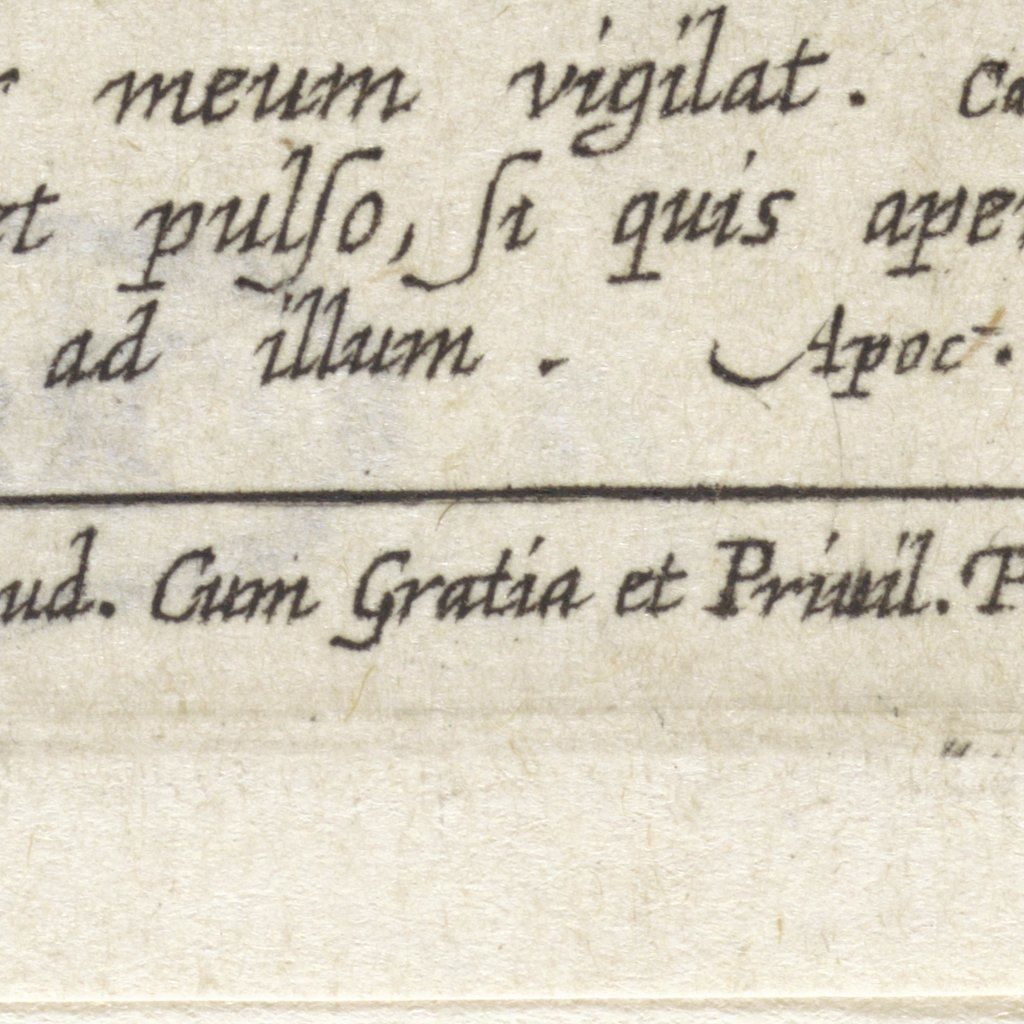 meum vigilat. ca
et pulſo, ſi quis aper
ad illum. Apoc.
ud. Cum Gratia et Priuil. P